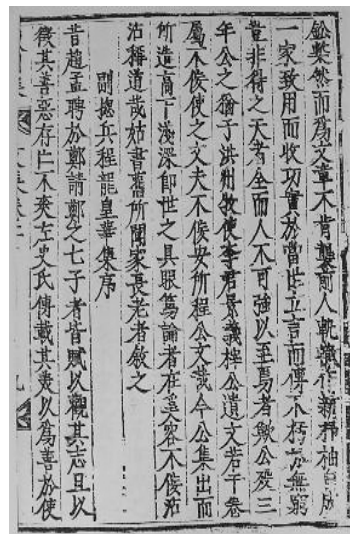 鈆槧然而爲文章不肯襲前人軌轍作新杼柚自成
一家致用而收功實於當世立言而傳不朽於無窮
豈非得之天者全而人不可強以至焉者歟公歿三
年公之胤子洪州牧使李君景義梓公遺文若干卷
屬不佞使之文夫不佞安所程公文哉今公集出而
所造高下淺深卽世之具眼篤論者在奚容不佞沾
沾稱道哉姑書舊所聞家長老者敘之
副摠兵程龍皇華集序
昔趙孟聘於鄭請鄭之七子者皆賦以觀其志且以
徵其善惡存亡不爽左史氏傳載其美以爲善於使
文集卷二
九